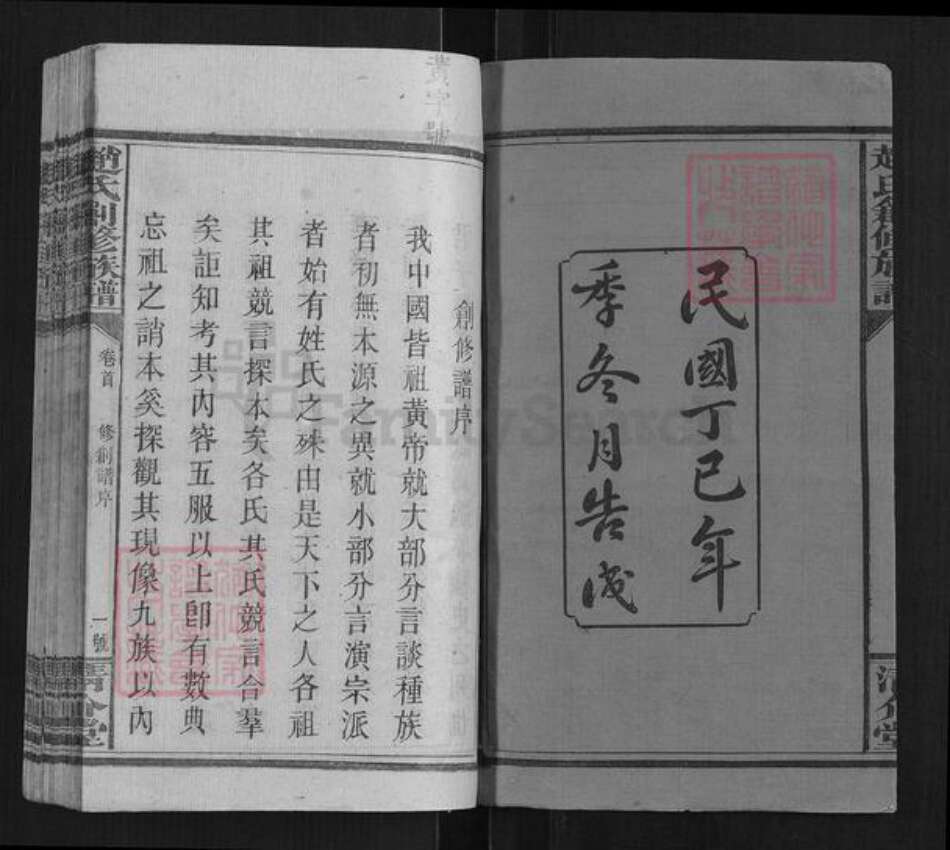 民國丁巳年
季冬月告成
趙氏創修族譜
清介堂
黃字號
創修譜序
我中國皆祖黃帝就大部分言談種族
者初無本源之異就小部分言演宗派
者始有姓氏之殊由是天下之人各祖
其祖競言探本矣各氏其氏競言合羣
矣詎知考其內容五服以上卽有數典
忘祖之誚本奚探觀其現像九族以內
趙氏創修族譜
卷首
修創譜序
一號
清介堂
FamilySearch